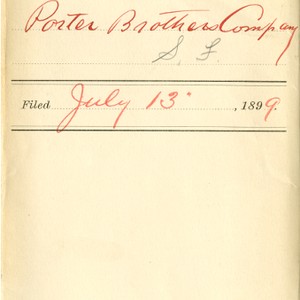 Porter Brothers Company
S. F.
Filed July 13 , 1899.